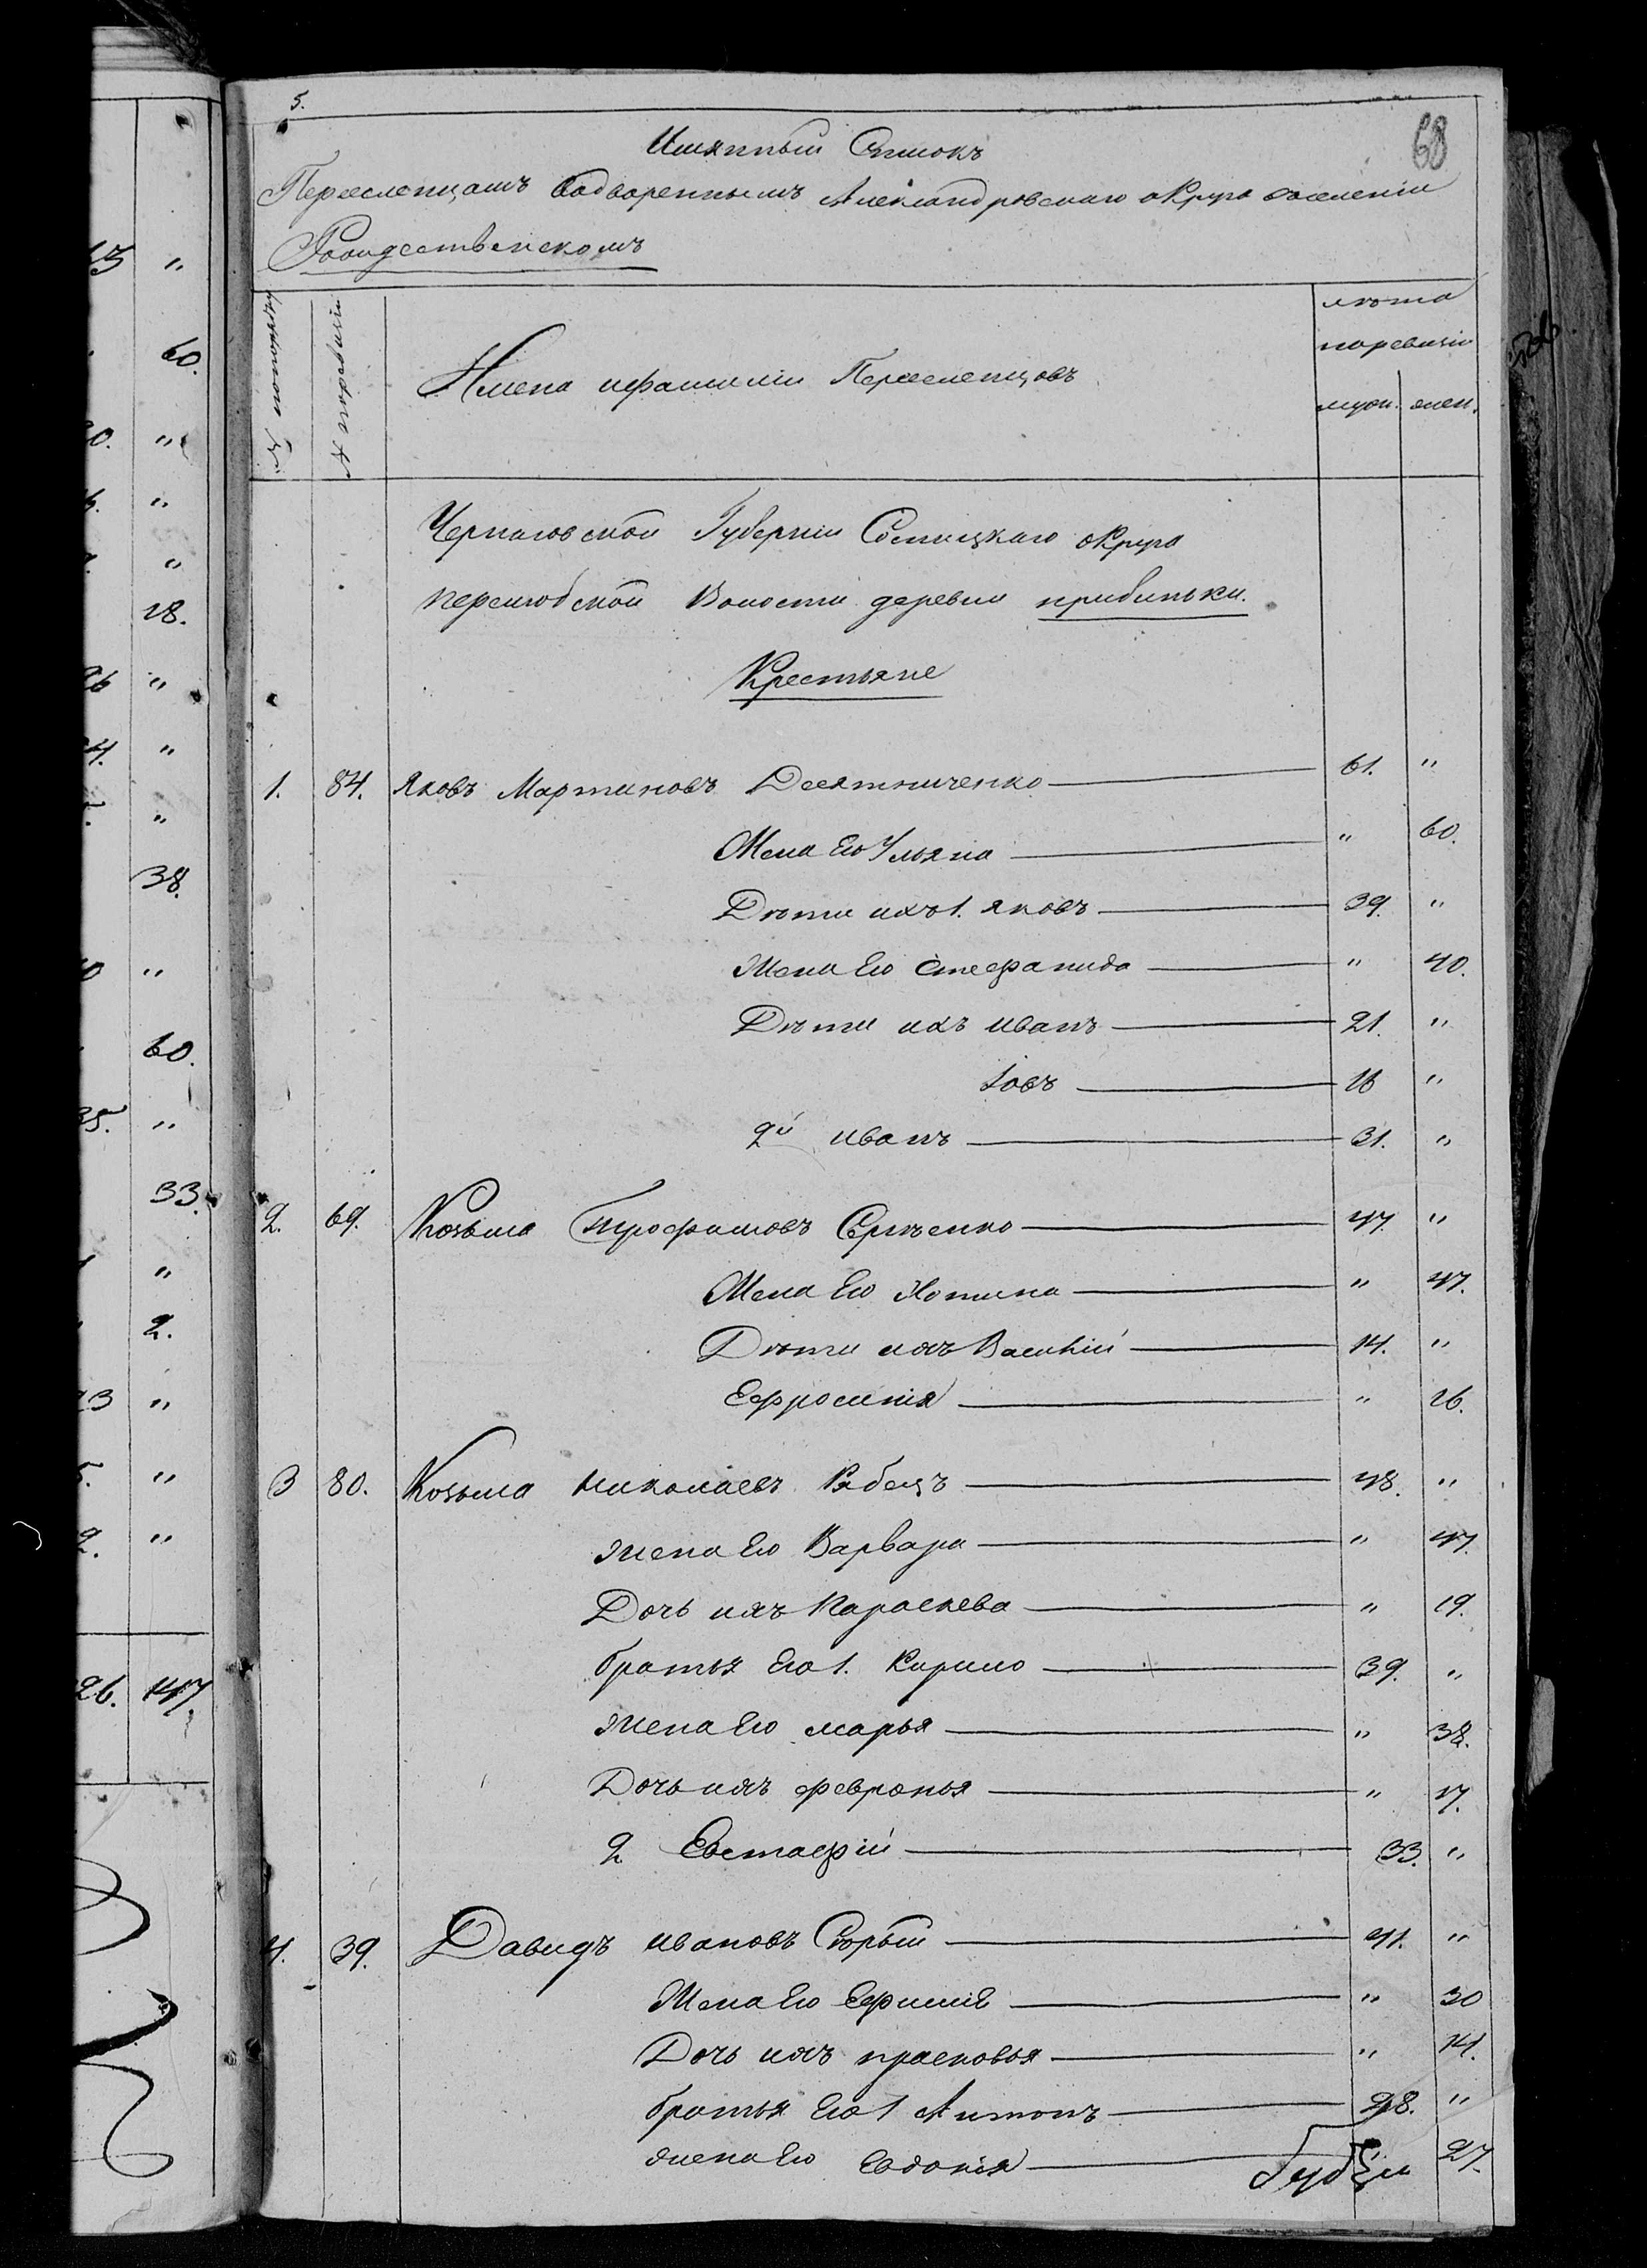 5.
68
Имянный Списокъ
Переселенцамъ водвореннымъ Александровскаго округа в селеніи
Рождественскомъ
Имена и фамиліи Переселенцовъ
лѣта
по ревизіи
муж. жен.
№ по ревизіи
Черниговской Губерніи Сосницкаго округа
перелюбской Волости деревни прибиньки.
Крестьяне
1. 84. Яковъ Мартиновъ Десятниченко 61. "
Жена Его Ульяна " 60.
Дѣти ихъ 1. яковъ 39. "
Жена Его Стефанида " 40.
Дѣти ихъ иванъ 21. "
Іовъ 16 "
2й иванъ 31. "
2. 69. Козьма трофимовъ Сергѣенко 47. "
Жена Его " 47.
Дѣти ихъ Василій 14. "
Ефросинія " 26.
3 80. Козьма николаевъ Рябецъ 48. "
жена Его Варвара " 47.
Дочь ихъ Параскева " 19.
братья Его 1. Кирило 39. "
жена Его марья " 38.
Дочь ихъ февронья " 17.
2 Евстафій 33. "
4. 39. Давидъ ивановъ 41. "
Жена Его " 30
Дочь ихъ прасковья " 14.
братья Его 1 Антонъ 28. "
жена Его Евдокія " 27.
15 "
60.
"
"
"
18.
26 "
"
"
38.
"
60.
35. "
33.
"
2.
"
"
2. "
26. 147